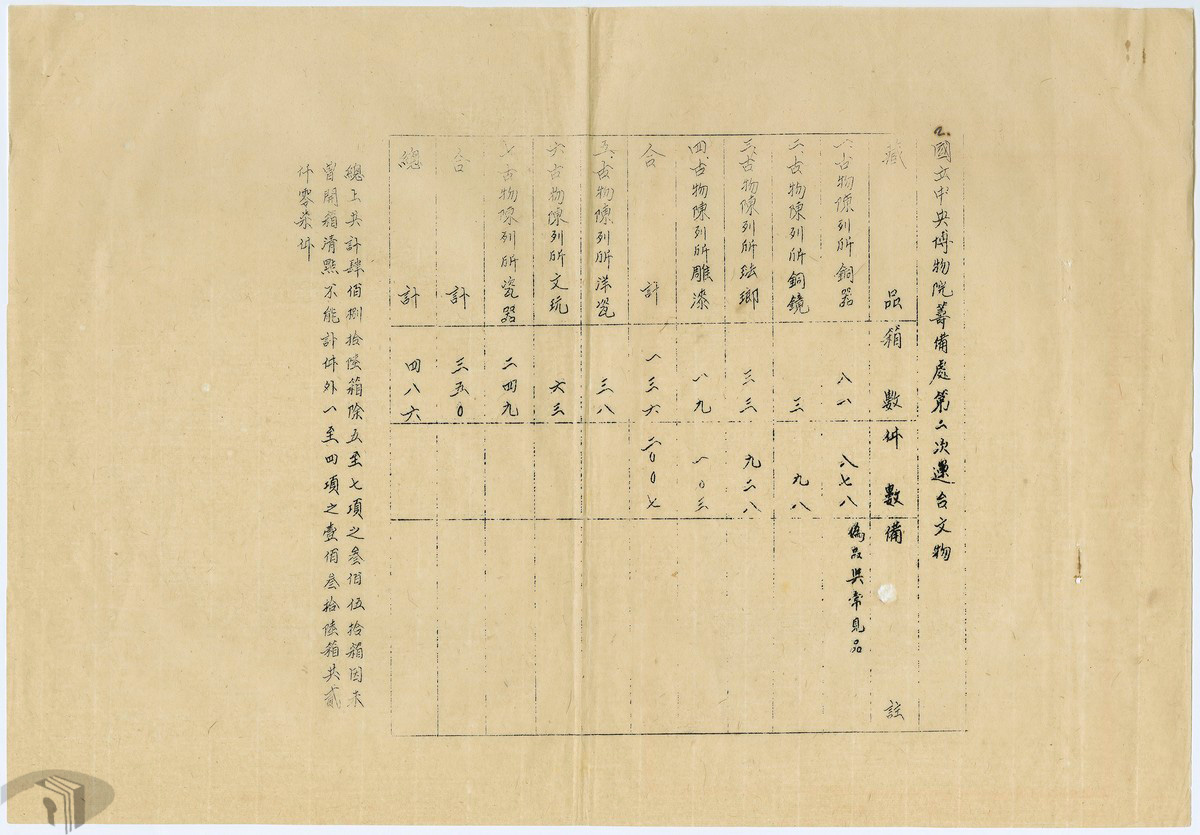 2.國立中央博物院籌備處第二次運台文物
藏品 箱數 件數 備註
一、古物陳列所銅器 八一 八七八 偽品與常見品
二、古物陳列所銅鏡 三 九八
三、古物陳列所琺瑯 三三 九二八
四、古物陳列所雕漆 一九 一〇三
合計 一三六 二〇〇七
五、古物陳列所洋瓷 三八
六、古物陳列所文玩 六三
七、古物陳列所瓷器 二四九
合計 三五〇
總計 四八六
總上共計肆佰捌拾陸箱除五至七項之叁佰伍拾箱因未
曾開箱清點不能計件外一至四項之壹佰叁拾陸箱共貳
仟零柒件